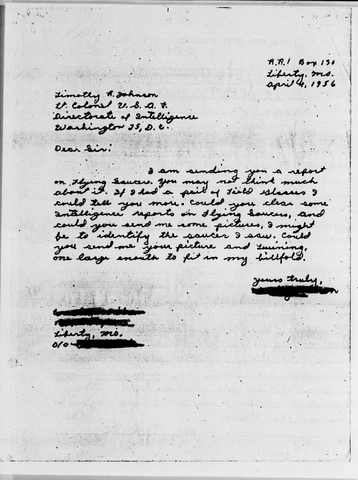 R.R.1 Box 130
Liberty, Mo.
April 4, 1956
Timothy R. Johnson
Lt. Colonel U.S.A.F.
Directorate of Intelligence
Washington 25, D.C.
Dear Sir:
I am sending you a report
on Flying Saucer. You may not think much
about it. If I had a pair of Field Glasses I
could tell you more. Could you clear some
Intelligence reports on Flying Saucers, and
could you send me some pictures, I might
be to identify the saucer I saw. Could
you send me your picture and
one large enouth to fit in my billfold.
yours truly,
Liberty, Mo.